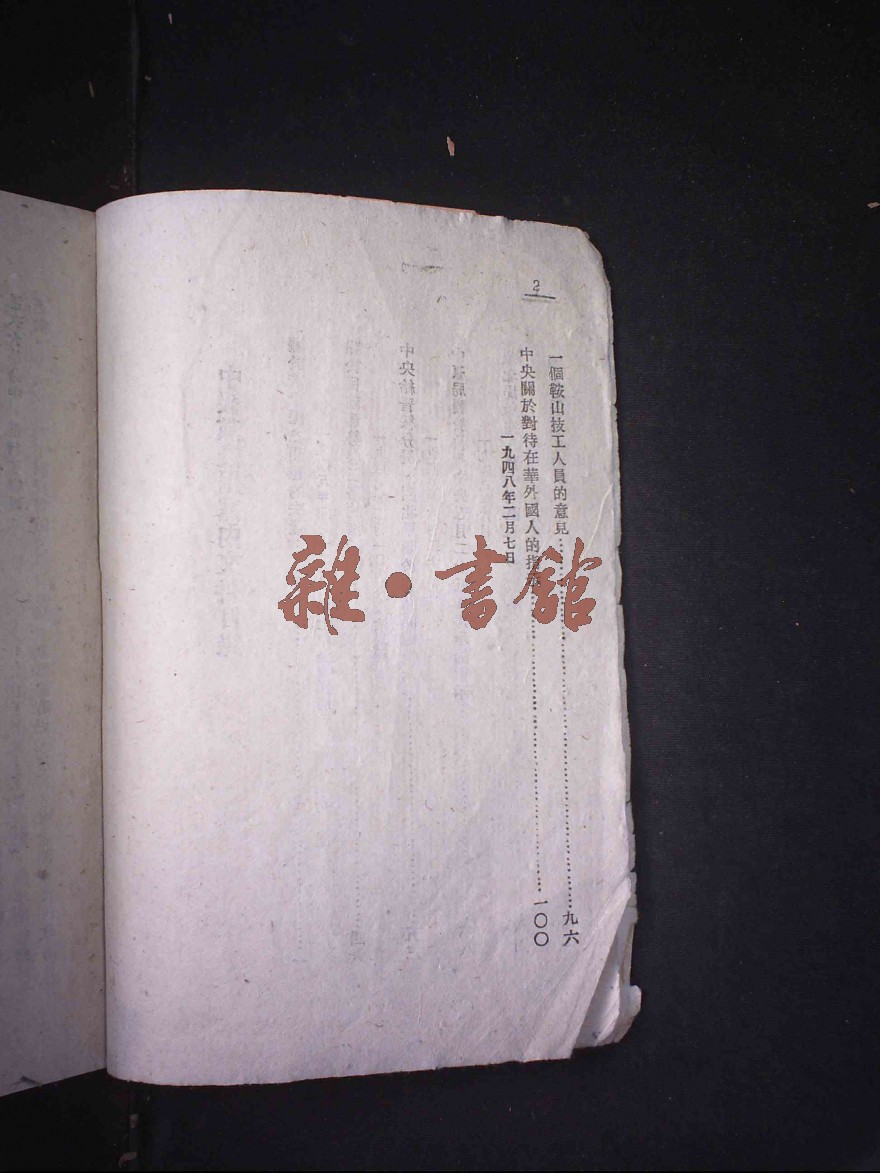 2
一個鞍山技工人員的意見……九六
中央關於對待在華外國人的指……一〇〇
一九四八年二月七日
雜·書館